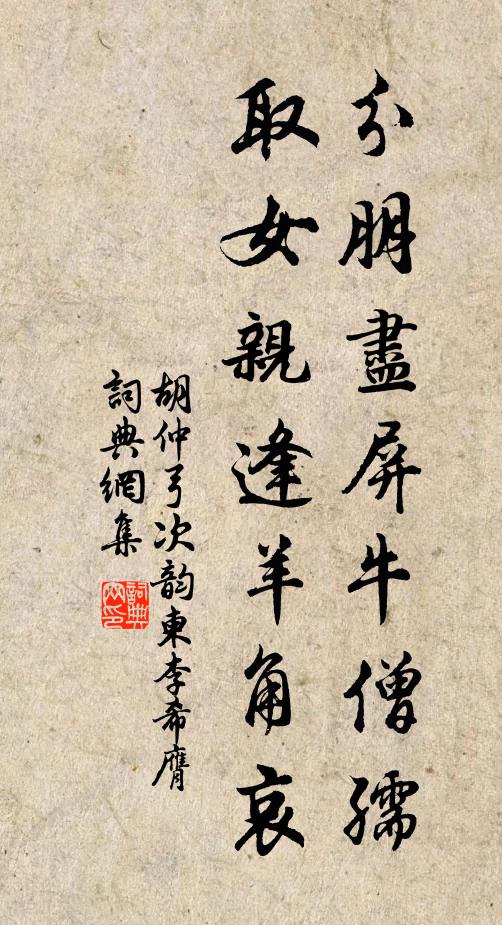 分朋盡屏牛僧孺
取女親逢羊角哀
胡仲弓次韵東李希膺
詞典網集
詞典網印